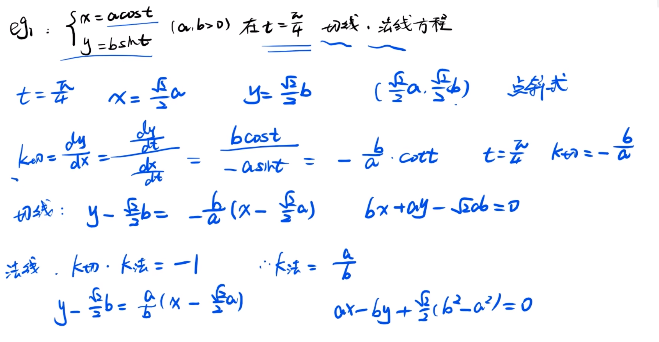 eg1: { x = acost y = bsint (a.b>0) 在 t = π/4 切线.法线方程
t = π/4 x = √2/2 a y = √2/2 b (√2/2 a, √2/2 b) 点斜式
k切 = dy/dx = (dy/dt)/(dx/dt) = bcost/-asint = - b/a · cott t = π/4 k切 = - b/a
切线: y - √2/2 b = - b/a (x - √2/2 a) bx + ay - √2ab = 0
法线. k切 · k法 = -1 ∴ k法 = a/b
y - √2/2 b = a/b (x - √2/2 a) ax - by + √2/2 (b² - a²) = 0